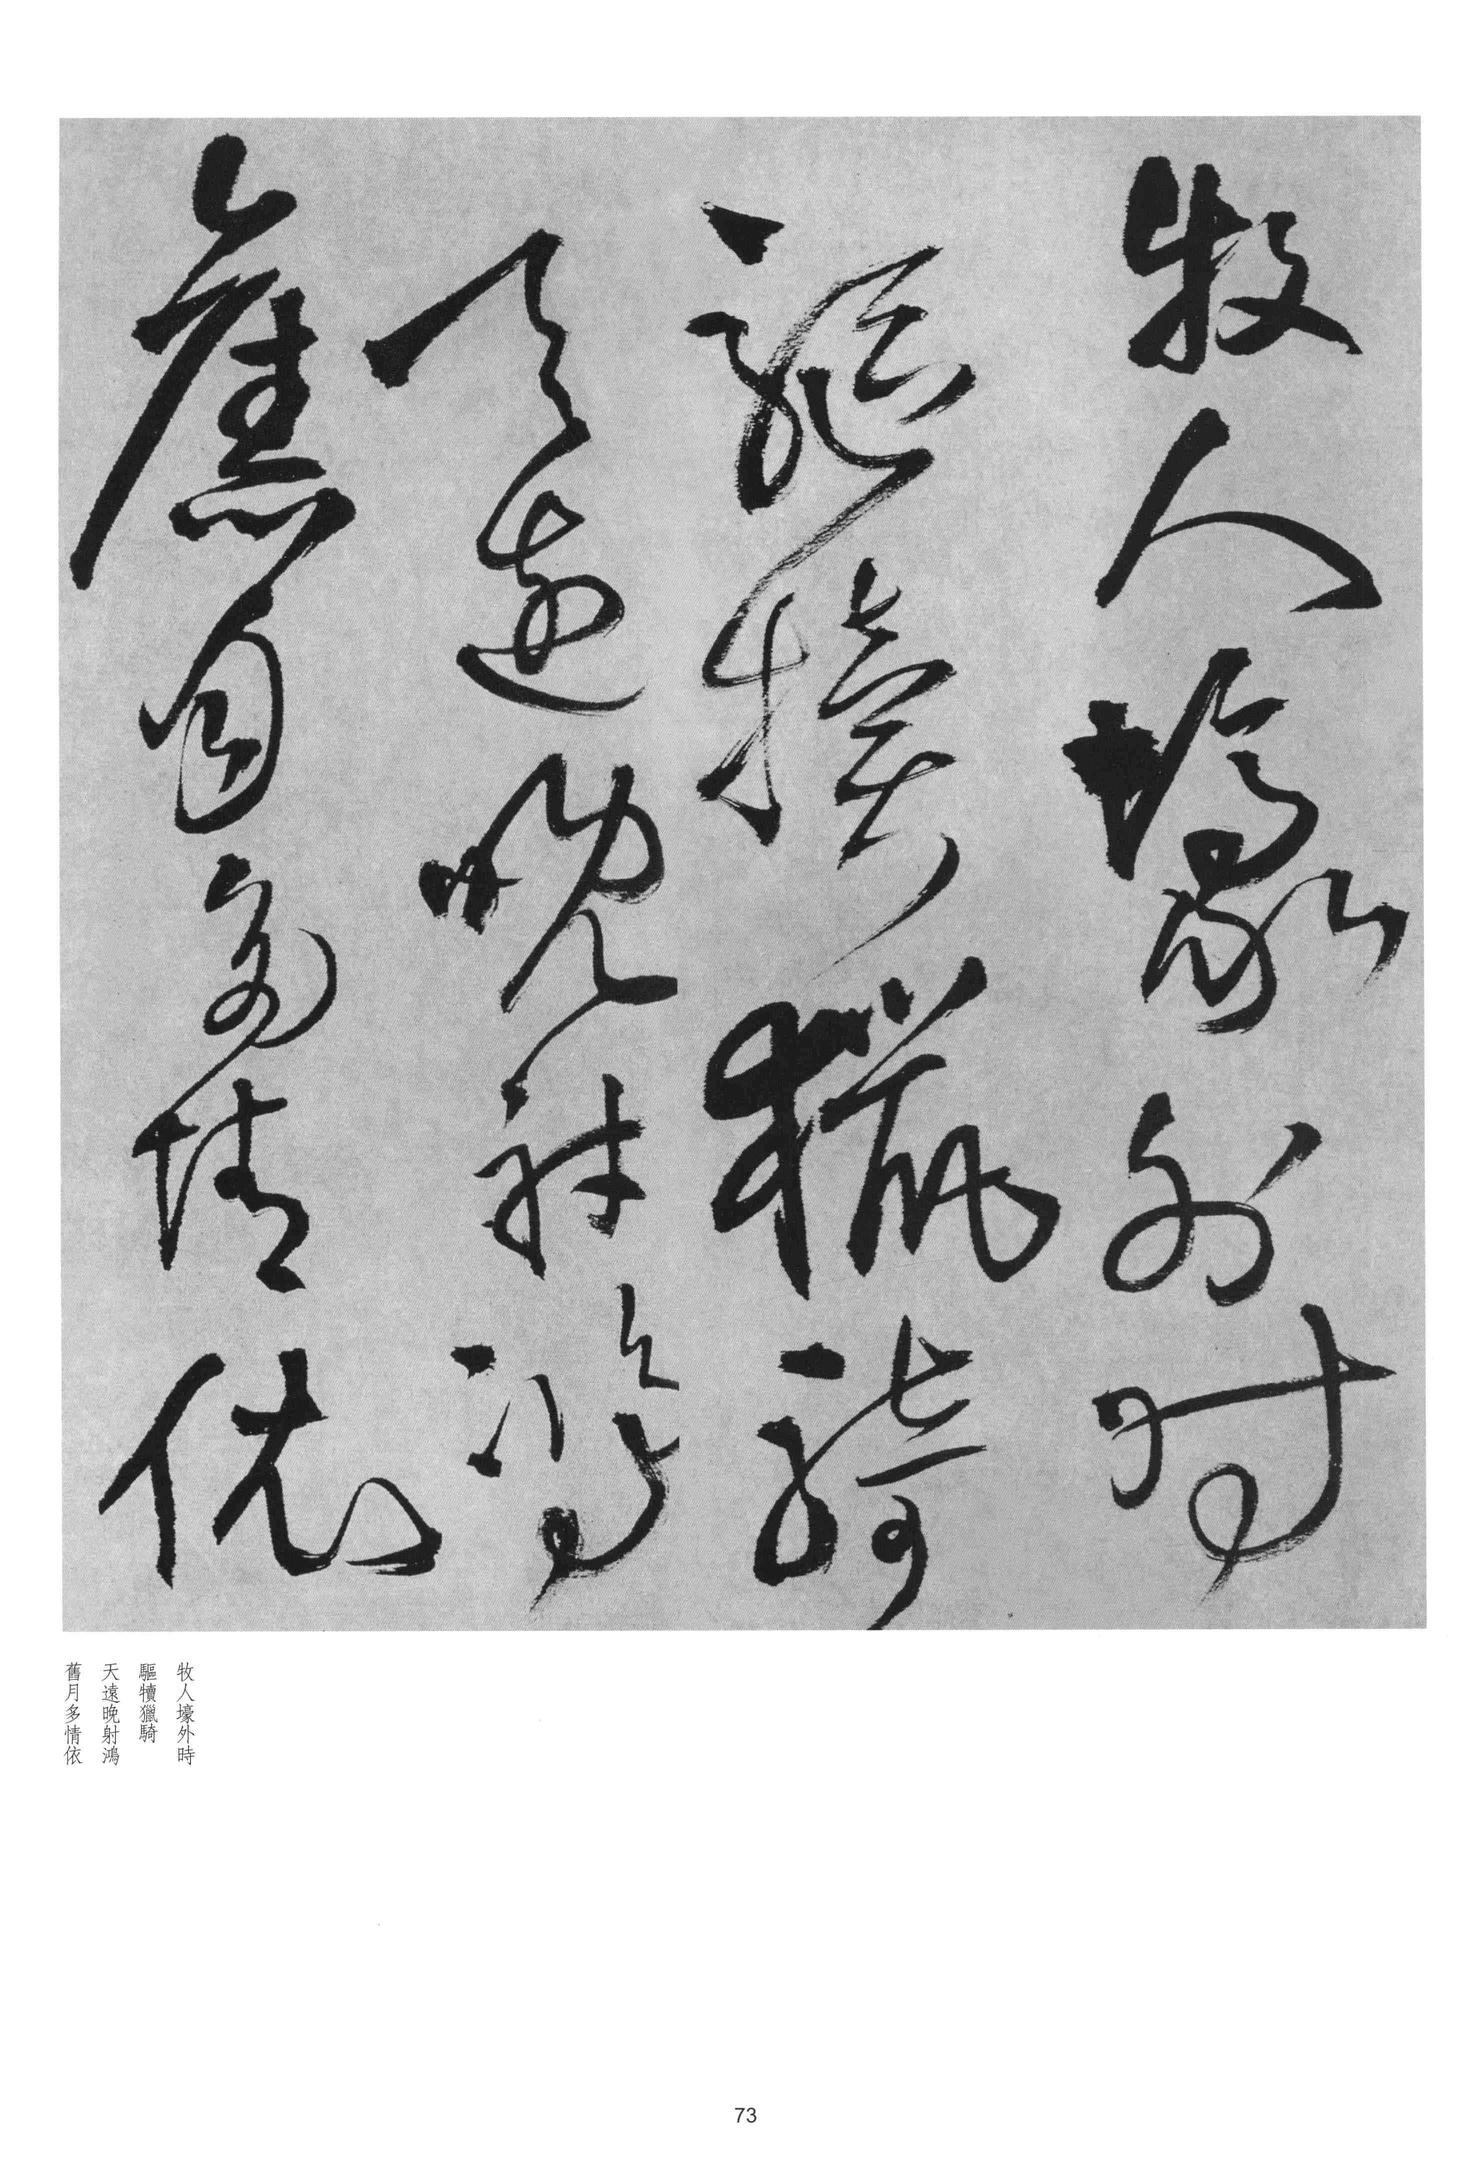 牧人壕外時
驅犢獵騎
天遠晚射鴻
舊月多情依
牧人壕外時
驅犢獵騎
天遠晚射鴻
舊月多情依
73